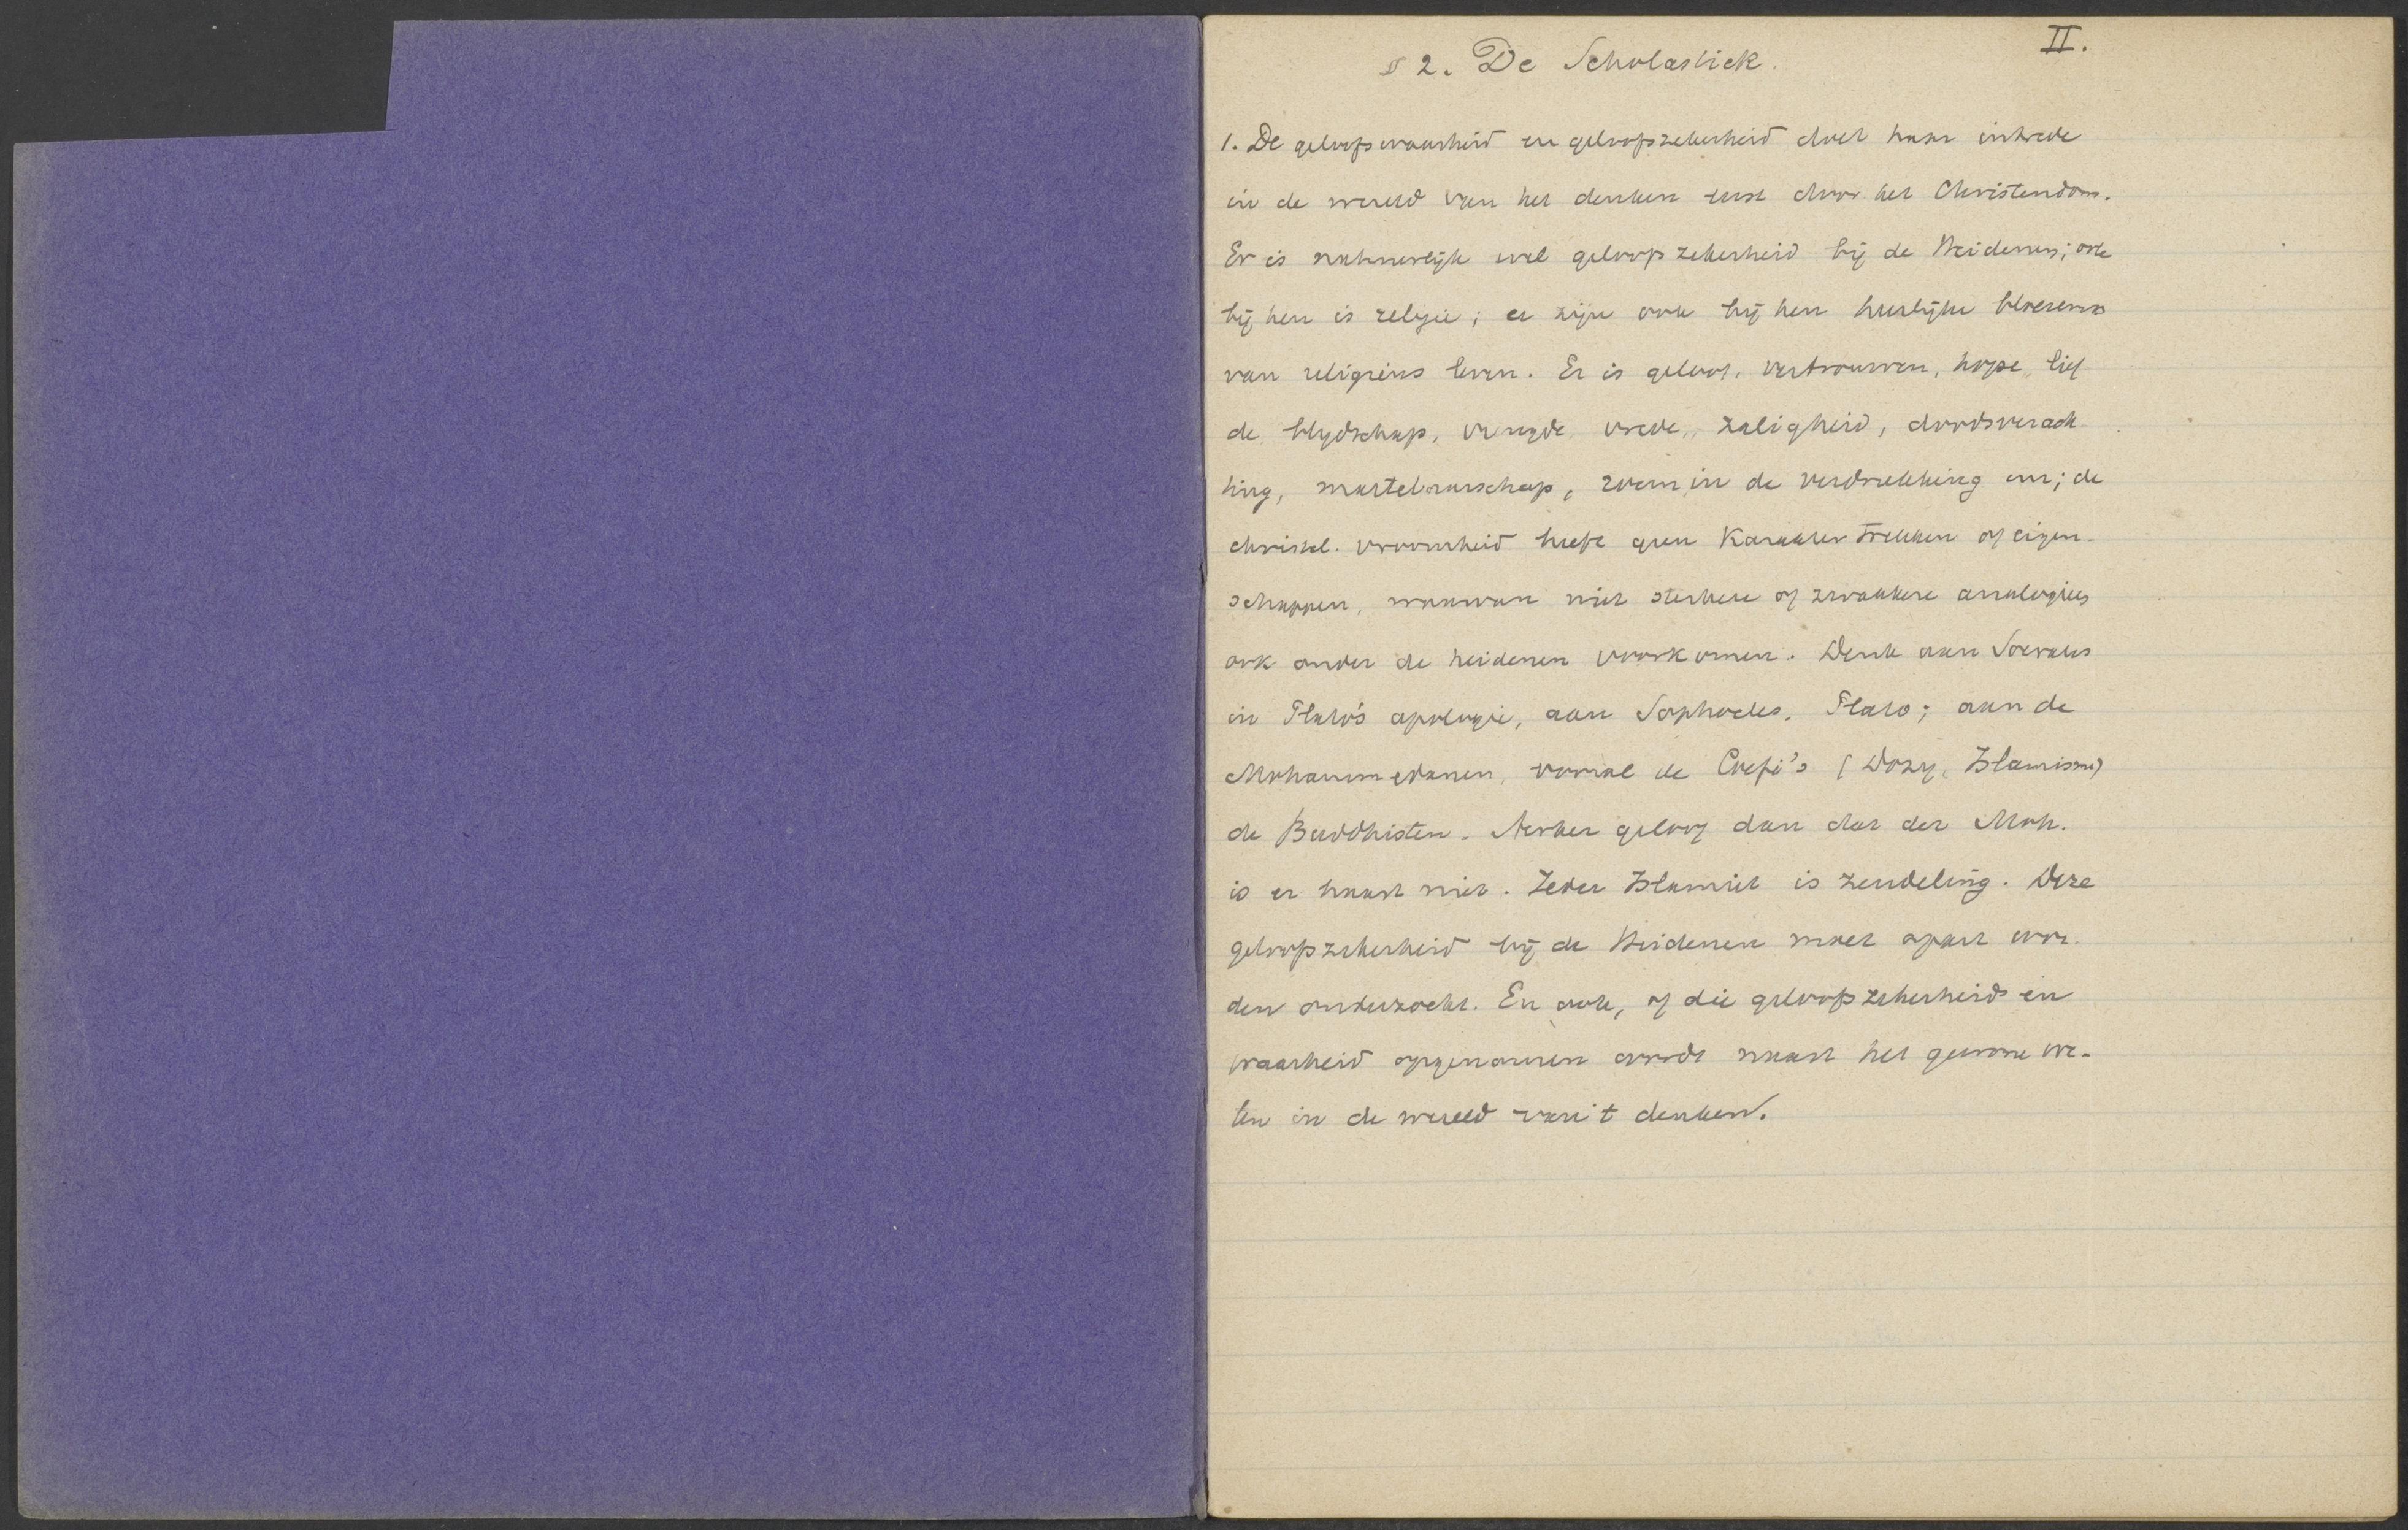 II.
§ 2. De Scholastiek.
1. De geloofswaarheid en geloofszekerheid doet haar intrede
in de wereld van het denken eerst door het Christendom.
Er is natuurlijk wel geloofszekerheid bij de Heidenen; ook
bij hen is religie; er zijn ook bij hen heerlijke bloesems
van religieus leven. Er is geloof, vertrouwen, hope, lief
de, blijdschap, vreugde, vrede, zaligheid, doodsverach
ting, martelaarschap, roem in de verdrukking enz; de
christel. vroomheid heeft geen Karaktertrekken of eigen-
schappen, waarvan niet sterkere of zwakkere analogieën
ook onder de heidenen voorkomen. Denk aan Socrates
in Plato's apologie, aan Sophocles, Plato; aan de
Mohammedanen, vooral de Soefi's (Dozy, Islamisme)
de Buddhisten. Sterker geloof dan dat der Moh.
is er haast niet. Ieder Islamiet is zendeling. Deze
geloofszekerheid bij de Heidenen moet apart wor-
den onderzocht. En ook, of die geloofszekerheid en
waarheid opgenomen wordt naast het gewone we-
ten in de wereld van 't denken.